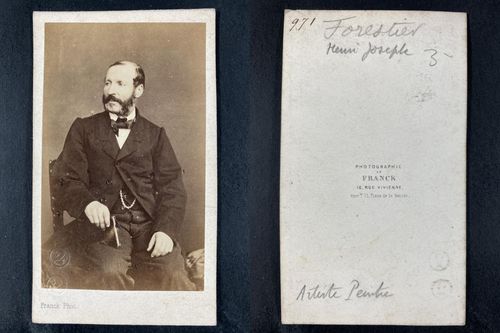 Franck Phot.
971
Forestier
Henri Joseph
PHOTOGRAPHIE
DE
FRANCK
18, RUE VIVIENNE,
Place de la Bourse.
Artiste Peintre